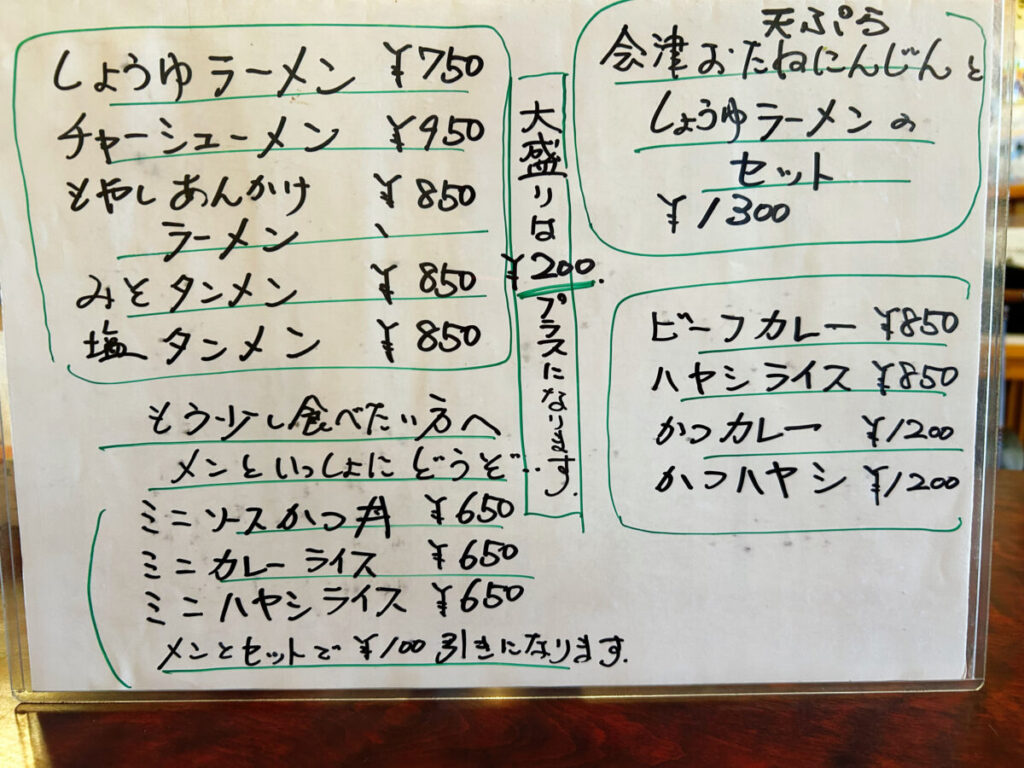 しょうゆラーメン ¥750
チャーシューメン ¥950
もやしあんかけ ¥850
ラーメン 、
みそタンメン ¥850
塩タンメン ¥850
大盛りは
¥200.
プラスになります.
天ぷら
会津おたねにんじんと
しょうゆラーメンの
セット
¥1300
ビーフカレー ¥850
ハヤシライス ¥850
かつカレー ¥1200
かつハヤシ ¥1200
もう少し食べたい方へ
メンといっしょにどうぞ...
ミニソースかつ丼 ¥650
ミニカレーライス ¥650
ミニハヤシライス ¥650
メンとセットで¥100引きになります.